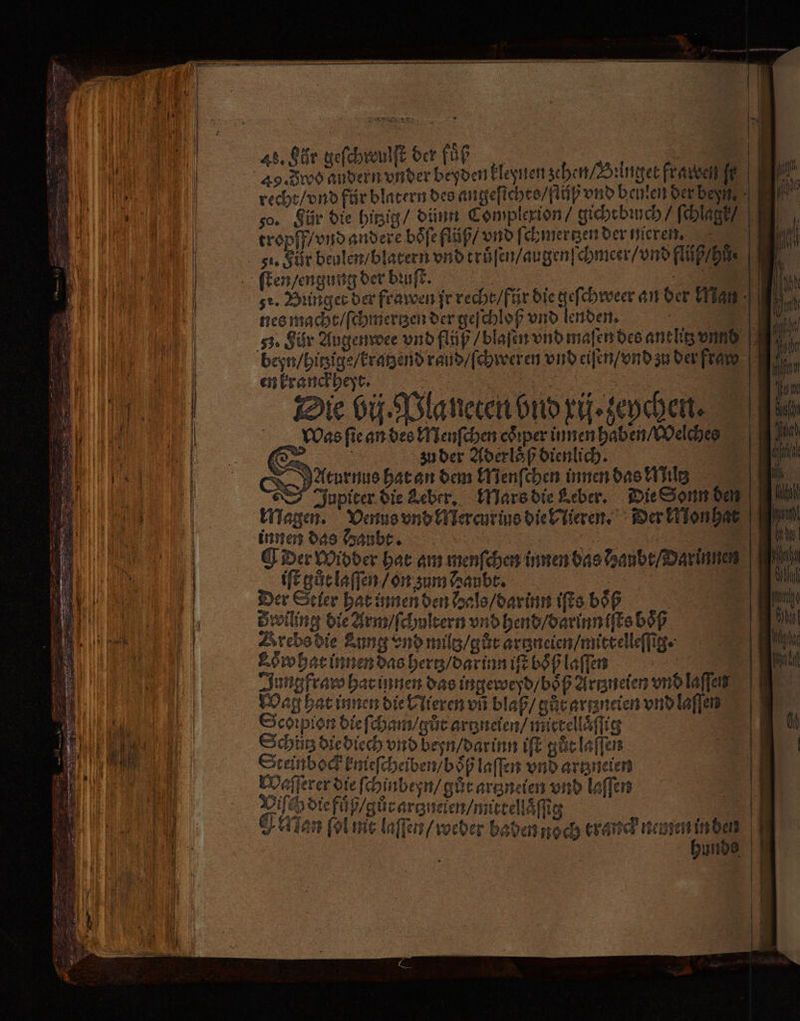 48. Für geschwulst der fůß
49. Zwo andern vnder beyden kleynen zehen/Bringet frawen jr
recht/vnd für blatern des angesichts/flüß vnd beulen der beyn.
50. Für die hitzig/ dünn Complexion/ gichtbruch/ schlagk/
tropff/vnd andere böse flüß/ vnd schmertzen der nieren.
51. Für beulen/blatern vnd trůsen/augenschmeer/vnd flüß/hů-
sten/engung der brust.
52. Bringet der frawen jr recht/für die geschweer an der Man
nes macht/schmertzen der geschloß vnd lenden.
53. Für Augenwee vnd flüß/blasen vnd masen des antlitz vnnd
beyn/hitzige/kratzend raud/schweren vnd eisen/vnd zu der fraw
en kranckheyt.
Die vij. Planeten vnd xij. zeychen.
Was sie an des Menschen cörper innen haben/Welches
zu der Aderlöß dienlich.
SAturnus hat an dem Menschen innen das Miltz
Jupiter die Leber. Mars die Leber. Die Sonn den
Magen. Venus vnd Mercurius die Nieren. Der Mon hat
innen das Haubt.
¶ Der Widder hat am menschen innen das Haubt/Darinnen
ist gůt lassen/on zum Haubt.
Der Stier hat innen den Hals/darinn ists böß
Zwiling die Arm/schultern vnd hend/darinn ists böß
Krebs die Lung vnd miltz/gůt artzneien/mittelessig.
Löw hat innen das hertz/darinn ist böß lassen
Jungfraw hat innen das ingeweyd/böß Artzneien vnd lassen
Wag hat innen die Nieren vñ blaß/ gůt artzneien vnd lassen
Scorpion die scham/gůt artzneien/ mittellässig
Schütz die diech vnd beyn/darinn ist gůt lassen
Steinbock kniescheiben/böß lassen vnd artzneien
Wasserer die schinbeyn/ gůt artzneien vnd lassen
Visch die fůß/gůt artzneien/mittellässig
¶ Man sol nit lassen/weder baden noch tranck nemen in den
hunds